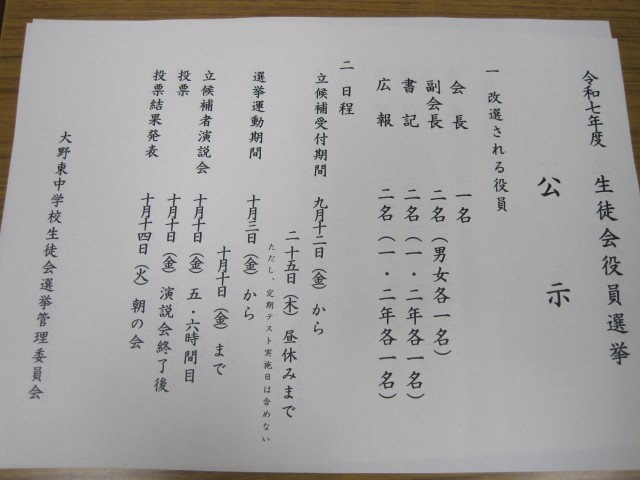 令和七年度 生徒会役員選挙
公示
一 改選される役員
会長 一名
副会長 二名（男女各一名）
書記 二名（一・二年各一名）
広報 二名（一・二年各一名）
二 日程
立候補受付期間 九月十二日（金）から
二十五日（木）昼休みまで
ただし、定期テスト実施日は含めない
選挙運動期間 十月三日（金）から
十月十日（金）まで
立候補者演説会 十月十日（金）五・六時間目
投票 十月十日（金）演説会終了後
投票結果発表 十月十四日（火）朝の会
大野東中学校生徒会選挙管理委員会